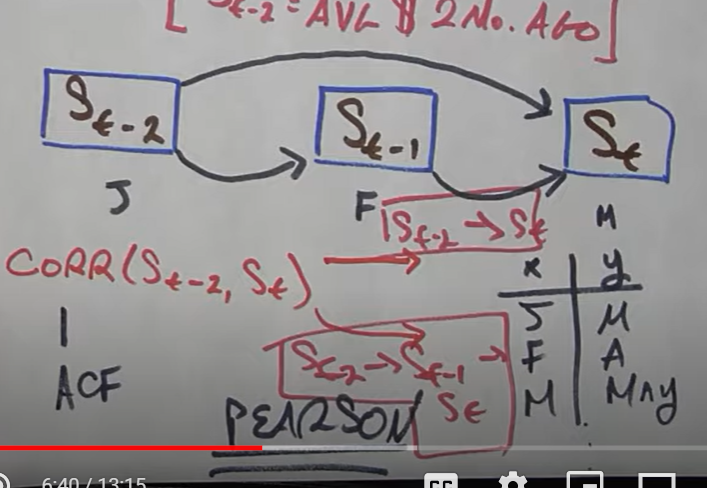 [ St-2 = AVG $ 2 Mo. AGO ]
St-2
St-1
St
J
F
M
St-2 → St
CORR(St-2, St) →
x | y
J | M
F | A
M | May
|
ACF
St-2 → St-1 →
St
PEARSON
6:40 / 13:15
CC